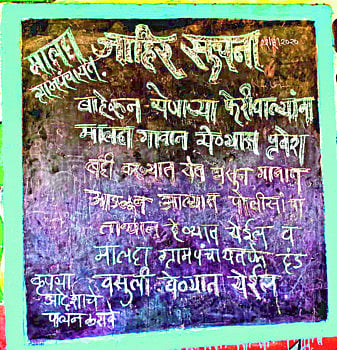 मालदा ग्रामपंचायत
जाहिर सूचना
बाहेरून येणाऱ्या फेरीवाल्यांना
मालदा गावात येण्यास प्रवेश
बंदी करण्यात येत असुन गावात
आढळून आल्यास पोलीसांना
ताब्यात देण्यात येईल व
मालदा ग्रामपंचायतर्फे दंड
वसुली घेण्यात येईल
कृपया
आदेशाचे
पालन करावे